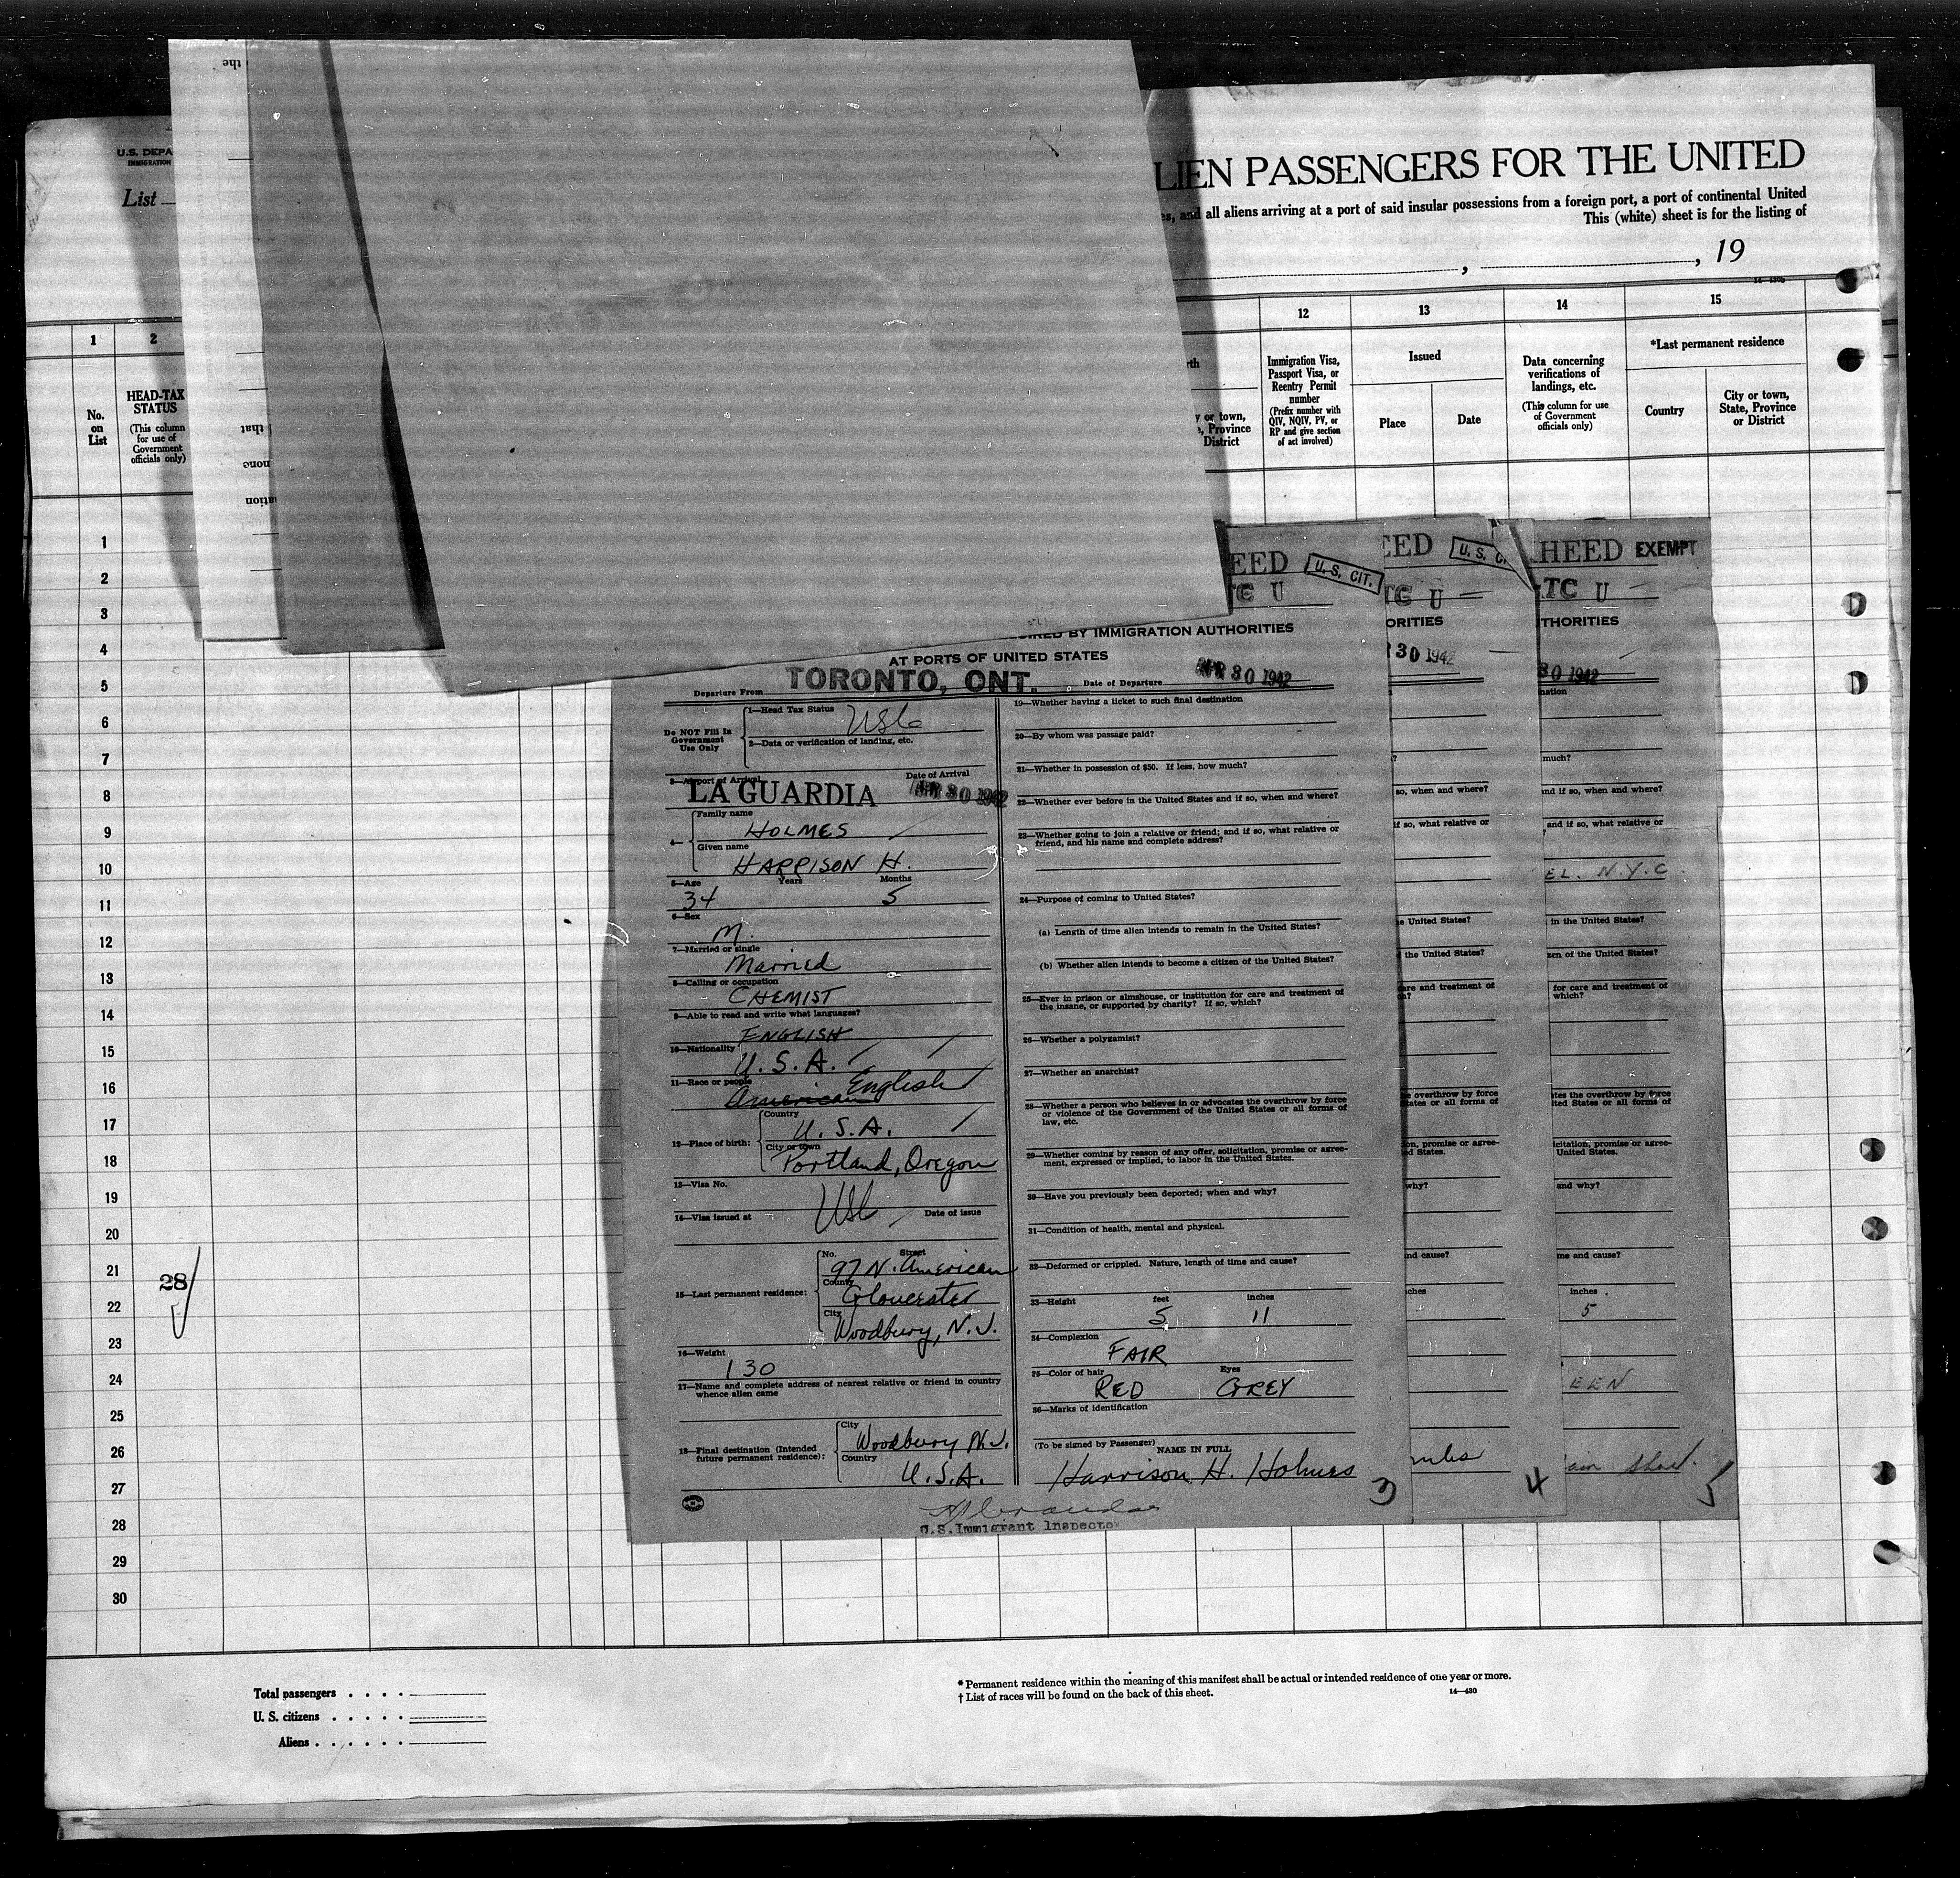 the
U.S. DEPA
IMMIGRATION
List
that
none
LIEN PASSENGERS FOR THE UNITED
es, and all aliens arriving at a port of said insular possessions from a foreign port, a port of continental United
This (white) sheet is for the listing of
, , 19
1 2 12 13 14 15
No. on List
HEAD-TAX STATUS
(This column for use of Government officials only)
rth
y or town,
, Province
District
Immigration Visa, Passport Visa, or Reentry Permit number
(Prefix number with QIV, NQIV, PV, or RP and give section of act involved)
Issued
Place Date
Data concerning verifications of landings, etc.
(This column for use of Government officials only)
*Last permanent residence
Country
City or town, State, Province or District
1
2
3
4
5
6
7
8
9
10
11
12
13
14
15
16
17
18
19
20
21
22
23
24
25
26
27
28
29
30
28
EED U.S. CIT.
U
IRED BY IMMIGRATION AUTHORITIES
AT PORTS OF UNITED STATES
Departure From TORONTO, ONT. Date of Departure APR 30 1942
Do NOT Fill In Government Use Only
1—Head Tax Status USC
2—Data or verification of landing, etc.
3—Airport of Arrival LA GUARDIA Date of Arrival APR 30 1942
4— Family name HOLMES
Given name HARRISON H.
5—Age Years Months
34 5
6—Sex
M.
7—Married or single
Married
8—Calling or occupation
CHEMIST
9—Able to read and write what languages?
ENGLISH
10—Nationality
U.S.A.
11—Race or people
American English
12—Place of birth: Country
U.S.A.
City or town
Portland, Oregon
13—Visa No.
USC
14—Visa issued at Date of issue
15—Last permanent residence: No. Street
97 N. American
County
Gloucester
City
Woodbury, N.J.
16—Weight
130
17—Name and complete address of nearest relative or friend in country whence alien came
18—Final destination (Intended future permanent residence): City
Woodbury N.J.
Country
U.S.A.
19—Whether having a ticket to such final destination
20—By whom was passage paid?
21—Whether in possession of $50. If less, how much?
22—Whether ever before in the United States and if so, when and where?
23—Whether going to join a relative or friend; and if so, what relative or friend, and his name and complete address?
24—Purpose of coming to United States?
(a) Length of time alien intends to remain in the United States?
(b) Whether alien intends to become a citizen of the United States?
25—Ever in prison or almshouse, or institution for care and treatment of the insane, or supported by charity? If so, which?
26—Whether a polygamist?
27—Whether an anarchist?
28—Whether a person who believes in or advocates the overthrow by force or violence of the Government of the United States or all forms of law, etc.
29—Whether coming by reason of any offer, solicitation, promise or agreement, expressed or implied, to labor in the United States.
30—Have you previously been deported; when and why?
31—Condition of health, mental and physical.
32—Deformed or crippled. Nature, length of time and cause?
33—Height feet inches
5 11
34—Complexion
FAIR
35—Color of hair Eyes
RED GREY
36—Marks of identification
(To be signed by Passenger) NAME IN FULL
Harrison H. Holmes
3
U.S. Immigrant Inspector
EED U.S. C
TC U
ORITIES
30 1942
?
so, when and where?
if so, what relative or
e United States?
the United States?
are and treatment of
e overthrow by force
tates or all forms of
on, promise or agree-
ed States.
why?
nd cause?
ches
4
HEED EXEMPT
TC U
THORITIES
30 1942
nation
much?
and if so, when and where?
and if so, what relative or
EL. N.Y.C
in the United States?
zen of the United States?
for care and treatment of
which?
tes the overthrow by force
ited States or all forms of
icitation, promise or agree-
United States.
and why?
me and cause?
inches
5
EEN
5
Total passengers . . . .
U. S. citizens . . . . .
Aliens . . . . . .
* Permanent residence within the meaning of this manifest shall be actual or intended residence of one year or more.
† List of races will be found on the back of this sheet. 14—430